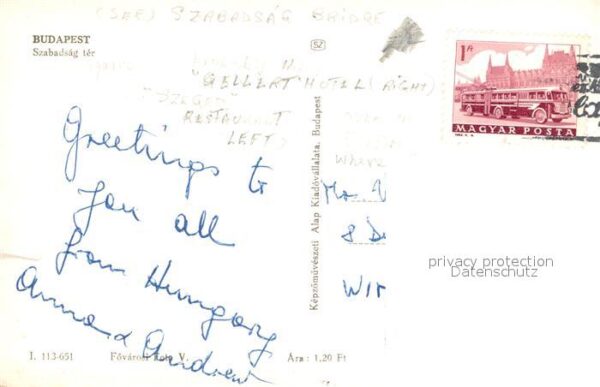 (SEE) SZABADSÁG BRIDGE
BUDAPEST
Szabadság tér
"GELLERT HOTEL (RIGHT)
"SZEGED
RESTAURANT
LEFT)
Where
Greetings to
you all
from Hungary
Anna & Andrew
Képzőművészeti Alap Kiadóvállalata, Budapest
SZ
1 Ft
MAGYAR POSTA
Mr
8
WIN
privacy protection
Datenschutz
I. 113-651 Fővárosi Foto V. Ára: 1,20 Ft